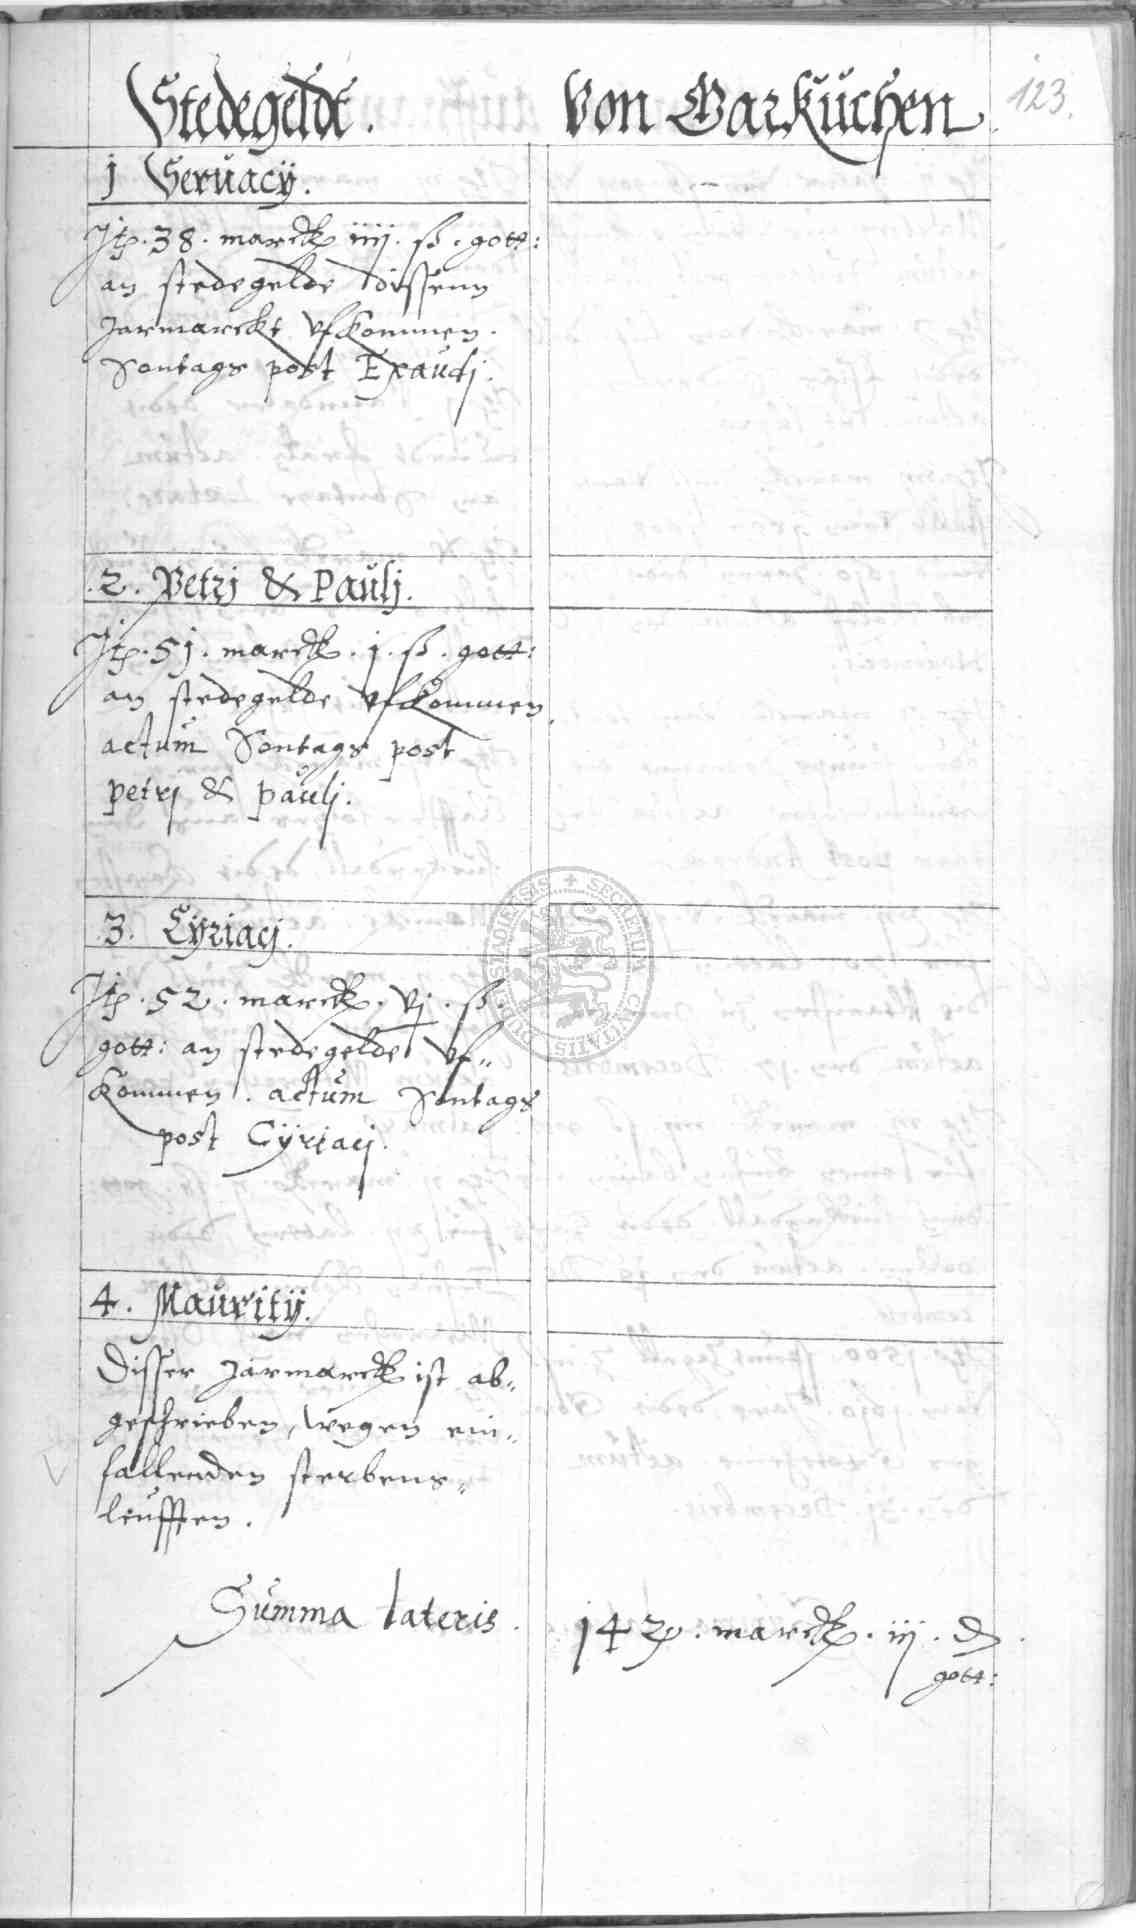 123.
Stedegeldt. Von Garkuchen.
j Servacÿ.
Itp. 38. marck iiij. ß. gott:
an stedegelde dissenn
Jarmarckt vfkommen.
Sontags post Exaudj.
.2. Petrj & Paulj.
Itp. 5j. marck. j. ß. gott:
an stedegelde vfkommen
actum Sontags post
petrj & paulj.
.3. Cÿriacj.
Itp. 52. marck. vj. ß.
gott: an stedegelde vf„
kommen. actum Sontags
post Cÿriacj.
4. Mauritÿ.
Disser Jarmarck ist ab„
geschrieben, wegen ein„
fallenden sterbens„
leufften.
Summa lateris. 142. marck. iij. d.
gott:
SECRETUM CIVITATIS STADENSIS